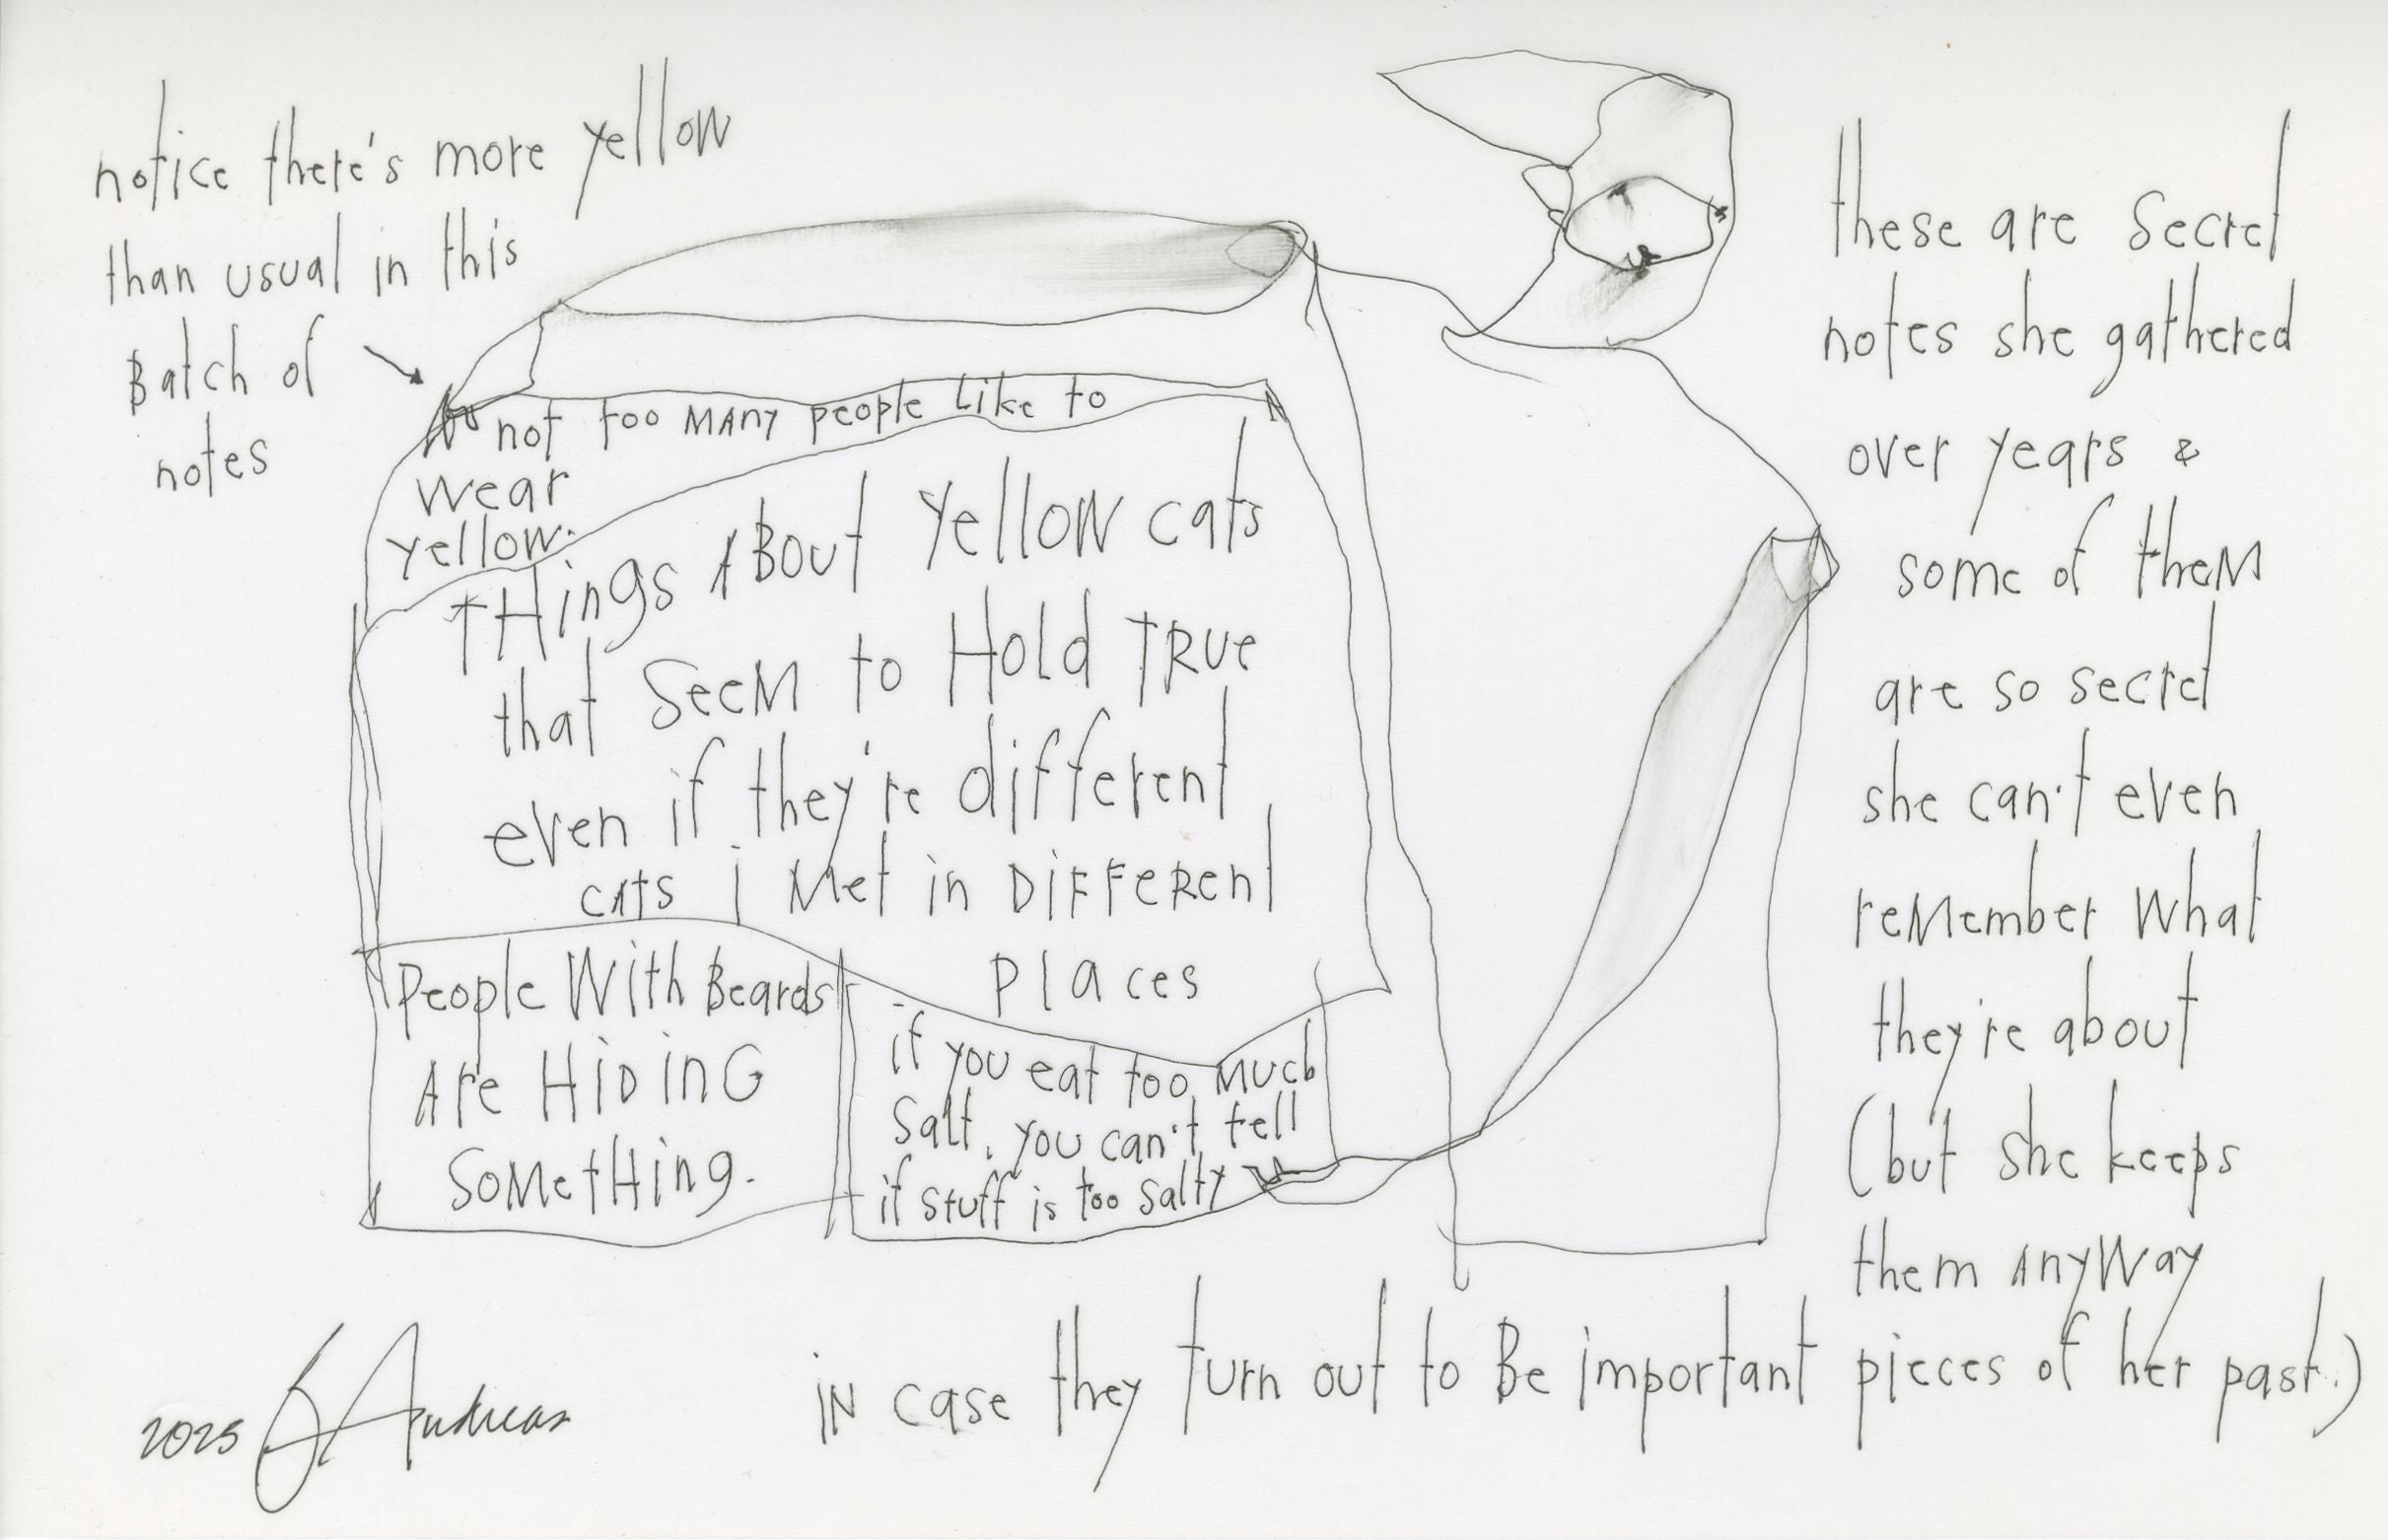 notice there's more yellow
than usual in this
Batch of
notes
not too MANY people like to
wear
yellow.
THings ABout yellow cats
that SeeM to Hold TRUe
even if they're different
cats i Met in DiFFeRent
places
People With Beards
Are HiDinG
SoMetHing.
if you eat too Much
Salt, you can't tell
if stuff is too salty
these are Secret
notes she gathered
over years &
some of theM
are so secret
she can't even
reMember What
they're about
(but she keeps
them AnyWay
iN case they turn out to Be important pieces of her past.)
2025 Andreas